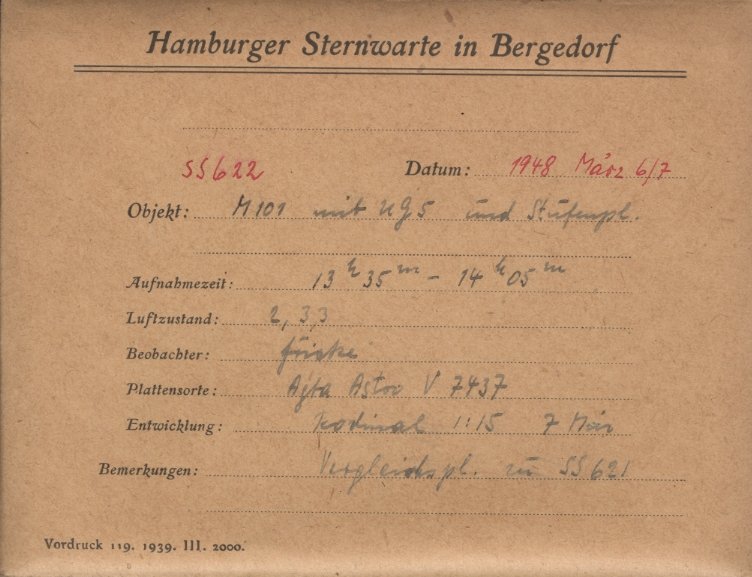 Hamburger Sternwarte in Bergedorf
SS622 Datum: 1948 März 6/7
Objekt: M 101 mit UG5 und Stufenpl.
Aufnahmezeit: 13 h 35 m - 14 h 05 m
Luftzustand: 2, 3,3
Beobachter:
Plattensorte: Agfa Astro V 7437
Entwicklung: Rodinal 1:15 7 Min
Bemerkungen: Vergleichspl. zu SS 621
Vordruck 119. 1939. III. 2000.